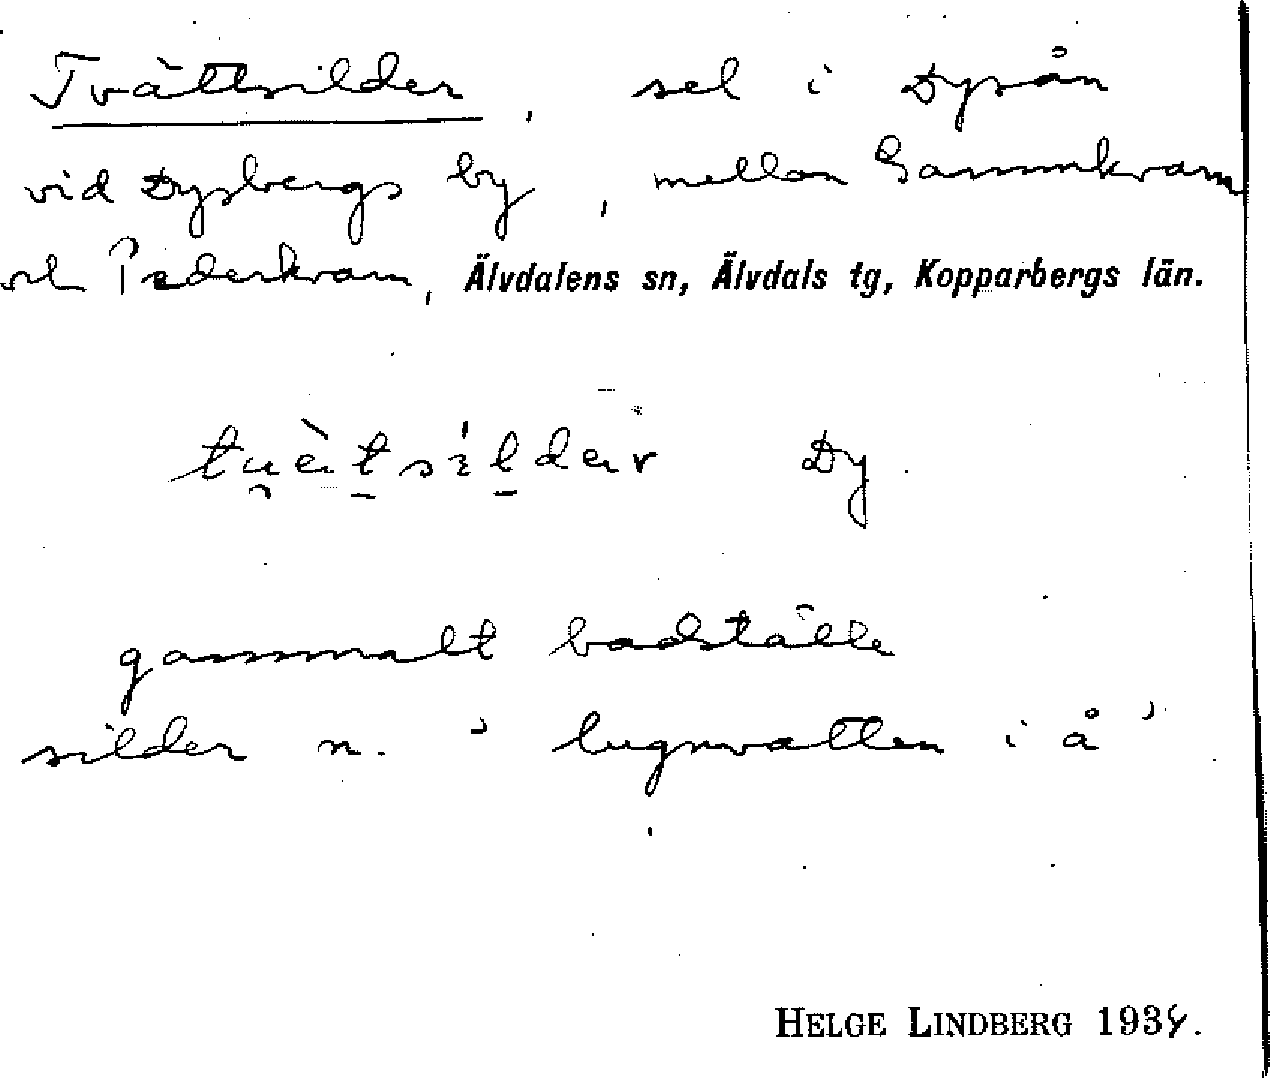 Tvättsilder, sel i Dysån
vid Dysbergs by, mellan Gammkvarn
och Pederkvarn, Älvdalens sn, Älvdals tg, Kopparbergs län.
Dy.
gammalt badställe
silder n. ' lugnvatten i å '
HELGE LINDBERG 1934.